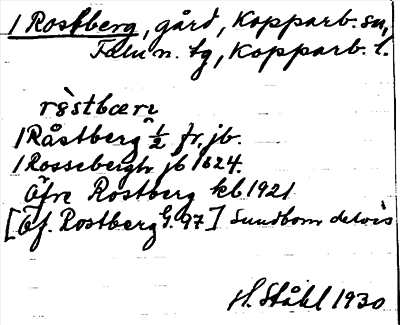 1 Rostberg, gård, Kopparb. sn,
Falu n. tg, Kopparb. l.
1 Råstberg ½ fr. jb.
1 Rossebergh jb 1624.
Öfre Rostberg kb 1921
[Öf. Rostberg G. 97] Sundborn delvis
H. Ståhl 1930